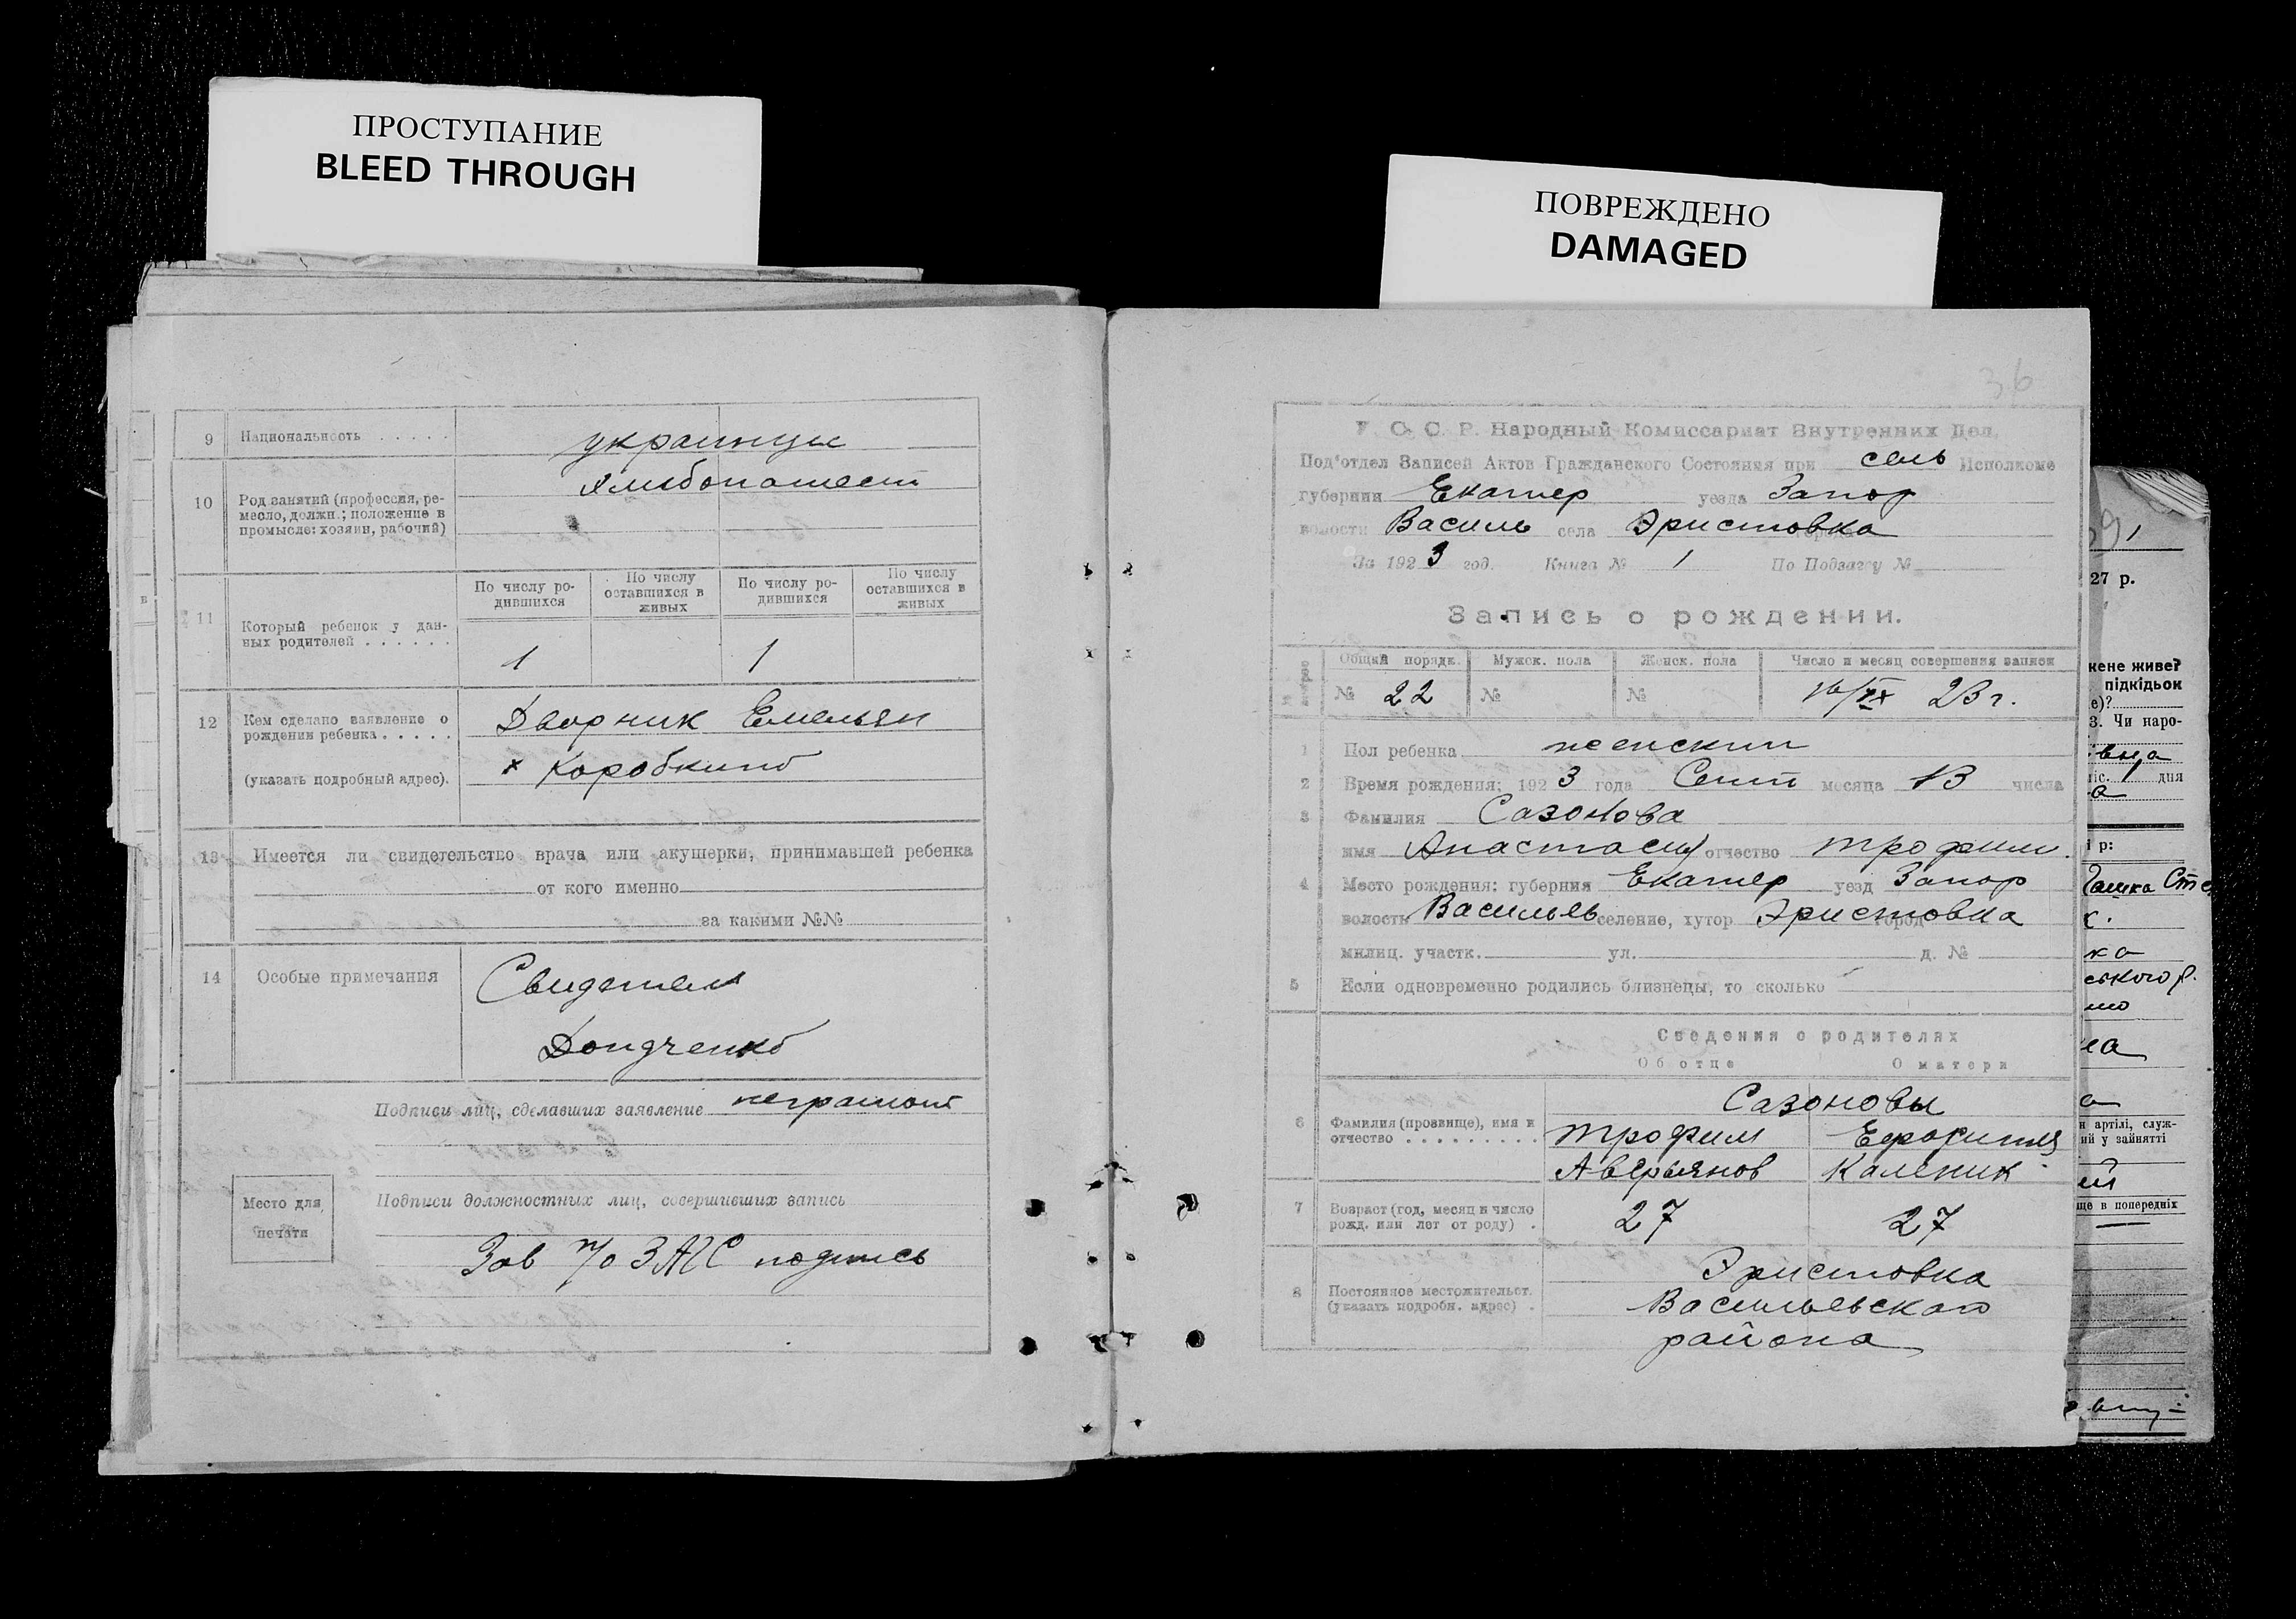 ПРОСТУПАНИЕ
BLEED THROUGH
ПОВРЕЖДЕНО
DAMAGED
9 Национальность . . . . . украинцы
10 Род занятий (профессия, ре-
месло, должн.; положение в
промысле: хозяин, рабочий)
По числу ро-
дившихся
По числу
оставшихся в
живых
По числу ро-
дившихся
По числу
оставшихся в
живых
11 Который ребенок у дан-
ных родителей . . . . . .
1 1
12 Кем сделано заявление о
рождении ребенка . . . . .
(указать подробный адрес).
Дворник Емельян
х Коробкино
13 Имеется ли свидетельство врача или акушерки, принимавшей ребенка
от кого именно
за какими №№
14 Особые примечания
Свидетели
Подписи лиц, сделавших заявление неграмот
Подписи должностных лиц, совершивших запись
Место для
печати
Зав п/о ЗАГС подпись
36
У. С. С. Р. Народный Комиссариат Внутренних Дел.
Под'отдел Записей Актов Гражданского Состояния при сель Исполкоме
губернии Екатер уезда Запор
волости Василь села Эристовка
За 1923 год. Книга № 1 По Подзагсу №
Запись о рождении.
Общий порядк. Мужск. пола Женск. пола Число и месяц совершения записи
№ 22 № № 16/IX 23 г.
1 Пол ребенка женский
2 Время рождения: 1923 года Сент месяца 13 числа
3 Фамилия Сазонова
имя Анастасия отчество Трофим.
4 Место рождения: губерния Екатер уезд Запор
волость Васильев селение, хутор город Эристовка
милиц. участк. ул. д. №
5 Если одновременно родились близнецы, то сколько
Сведения о родителях
Об отце О матери
Сазоновы
6 Фамилия (прозвище), имя и
отчество . . . . . . . . .
Трофим Ефросиния
Аверьянов Каленик
7 Возраст (год, месяц и число
рожд. или лет от роду) .
27 27
8 Постоянное местожительст.
(указать подробн. адрес) .
Эристовка
Васильевского
района
27 р.
жене живе?
підкідьок
е)?
3. Чи наро-
міс. 1 дня
і р:
ського р.
н артілі, служ-
ий у зайнятті
ще в попередніх